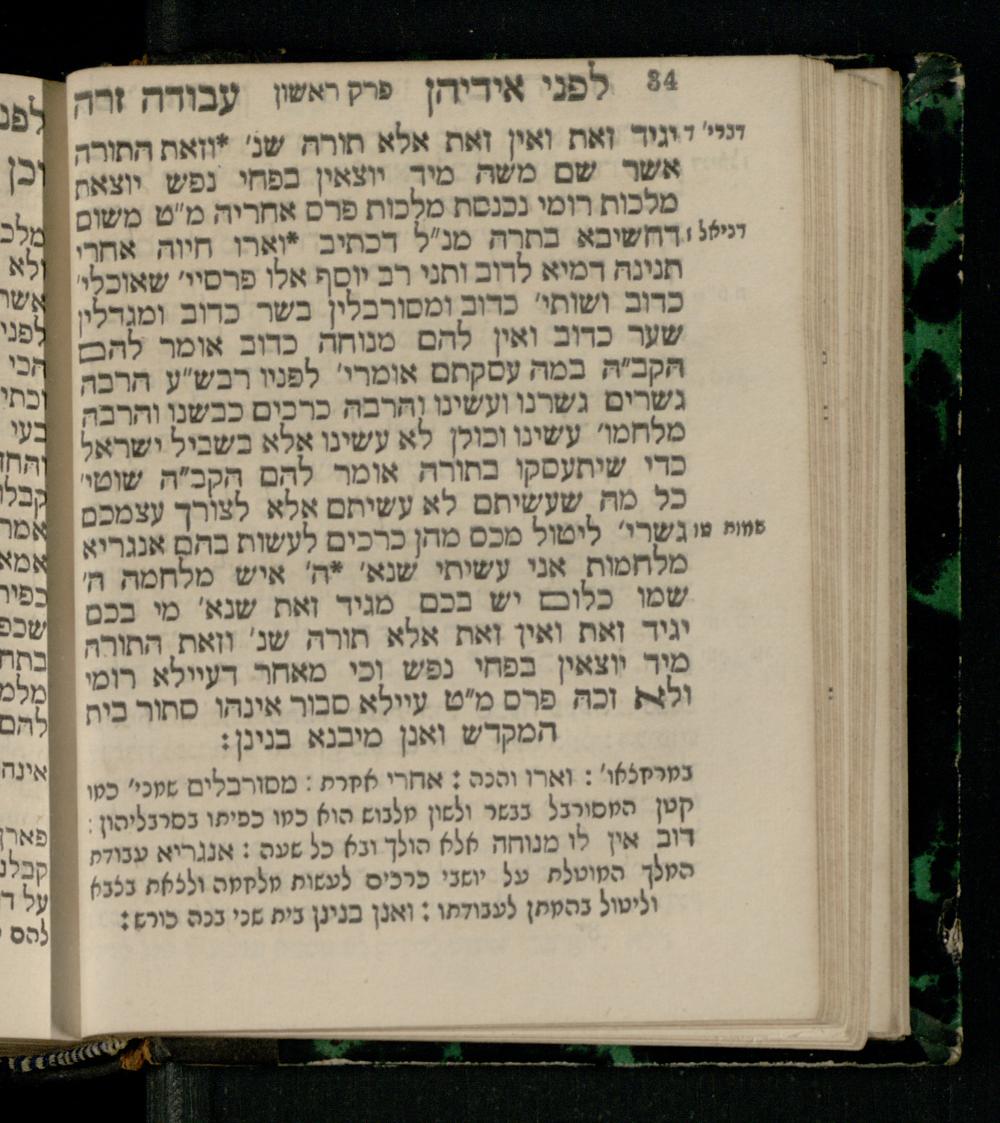 34 לפני אידיהן פרק ראשון עבודה זרה
דברי' ד יגיד זאת ואין זאת אלא תורה שנ' *וזאת התורה
אשר שם משה מיד יוצאין בפחי נפש יוצאת
מלכות רומי נכנסת מלכות פרס אחריה מ"ט משום
דניאל ז דחשיבא בתרה מנ"ל דכתיב *וארו חיוה אחרי
תנינה דמיא לדוב ותני רב יוסף אלו פרסיי' שאוכלי'
כדוב ושותי' כדוב ומסורבלין בשר כדוב ומגדלין
שער כדוב ואין להם מנוחה כדוב אומר להם
הקב"ה במה עסקתם אומרי' לפניו רבש"ע הרבה
גשרים גשרנו ועשינו והרבה כרכים כבשנו והרבה
מלחמו' עשינו וכולן לא עשינו אלא בשביל ישראל
כדי שיתעסקו בתורה אומר להם הקב"ה שוטי'
כל מה שעשיתם לא עשיתם אלא לצורך עצמכם
שמות טו גשרי' ליטול מכס מהן כרכים לעשות בהם אנגריא
מלחמות אני עשיתי שנא' *ה' איש מלחמה ה'
שמו כלום יש בכם מגיד זאת שנא' מי בכם
יגיד זאת ואין זאת אלא תורה שנ' וזאת התורה
מיד יוצאין בפחי נפש וכי מאחר דעיילא רומי
ולא זכה פרס מ"ט עיילא סבור אינהו סתור בית
המקדש ואנן מיבנא בנינן:
: וארו והנה : אחרי אחרת : מסורבלים שמני' כמו
קטן המסורבל בבשר ולשון מלבוש הוא כמו כפיתו בסרבליהון :
דוב אין לו מנוחה אלא הולך ובא כל שעה : אנגריא עבודת
המלך המוטלת על יושבי כרכים לעשות מלחמה ולצאת בצבא
וליטול בהמתן לעבודתו : ואנן בנינן בית שני בנה כורש :